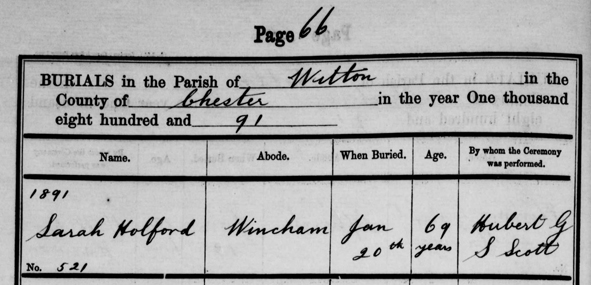 Page 66
BURIALS in the Parish of Witton in the
County of Chester in the year One thousand
eight hundred and 91
Name. Abode. When Buried. Age. By whom the Ceremony was performed.
1891
Sarah Holford Wincham Jan 20th 69 years Hubert G S Scott
No. 521